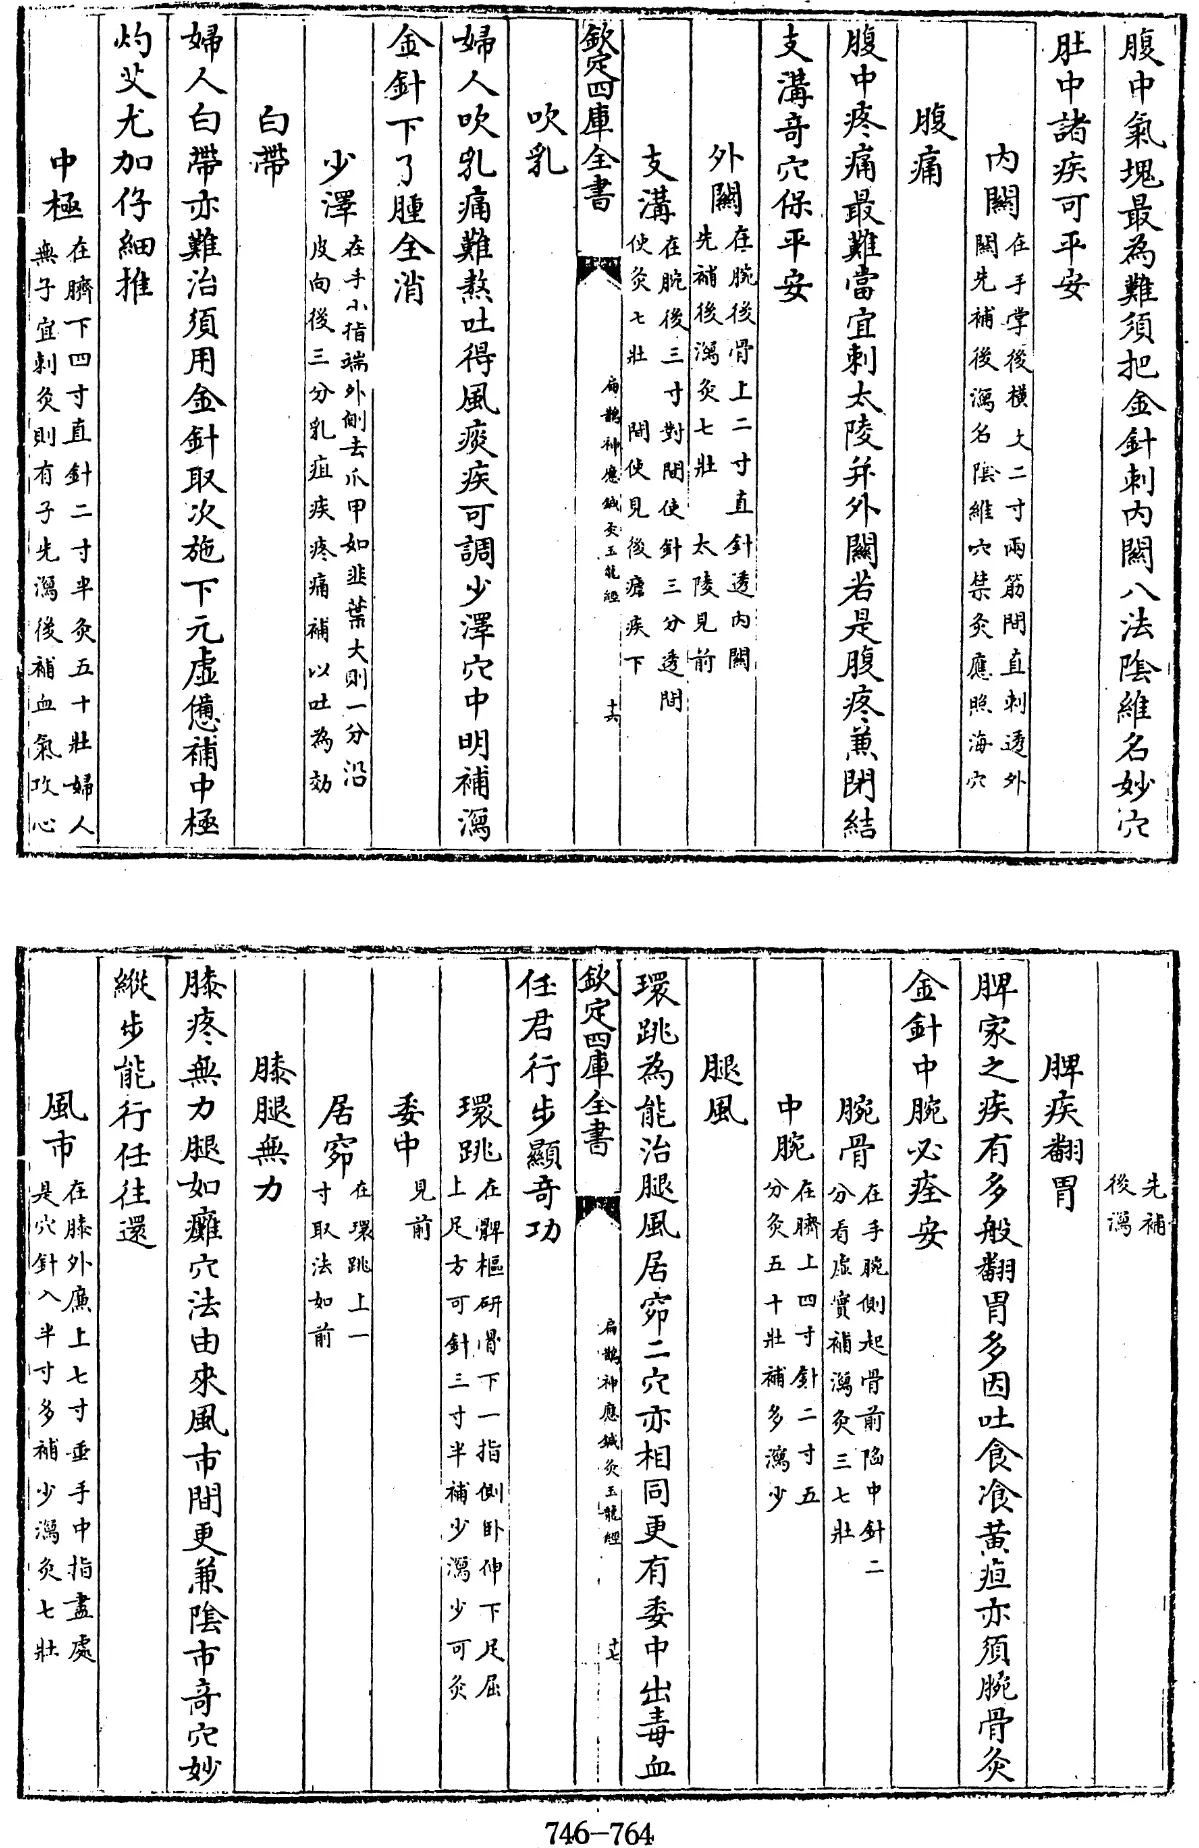 腹中氣塊最為難須把金針刺内關八法陰維名妙穴
肚中諸疾可平安
内關
在手掌後横文二寸兩筋間直刺透外
關先補後瀉名陰維穴禁灸應照海穴
腹痛
腹中疼痛最難當宜刺太陵并外關若是腹疼兼閉結
支溝竒穴保平安
外關
在腕後骨上二寸直針透内關
先補後瀉灸七壯 太陵見前
支溝
在腕後三寸對間使針三分透間
使灸七壯 間使見後瘧疾下
欽定四庫全書
扁鵲神應鍼灸玉龍經
十六
吹乳
婦人吹乳痛難熬吐得風痰疾可調少澤穴中明補瀉
金針下了腫全消
少澤
在手小指端外側去爪甲如韭葉大則一分沿
皮向後三分乳疽疾疼痛補以吐為効
白帶
婦人白帶亦難治須用金針取次施下元虛憊補中極
灼艾尤加仔細推
中極
在臍下四寸直針二寸半灸五十壯婦人
無子宜刺灸則有子先瀉後補血氣攻心
先補
後瀉
脾疾翻胃
脾家之疾有多般翻胃多因吐食飡黄疸亦須腕骨灸
金針中脘必痊安
腕骨
在手腕側起骨前陷中針二
分看虛實補瀉灸三七壯
中脘
在臍上四寸針二寸五
分灸五十壯補多瀉少
腿風
環跳為能治腿風居窌二穴亦相同更有委中出毒血
欽定四庫全書
扁鵲神應鍼灸玉龍經
十七
任君行步顯竒功
環跳
在髀樞研骨下一指側卧伸下足屈
上足方可針三寸半補少瀉少可灸
委中
見前
居窌
在環跳上一
寸取法如前
膝腿無力
膝疼無力腿如癱穴法由來風市間更兼陰市竒穴妙
縱步能行任往還
風市
在膝外廉上七寸垂手中指盡處
是穴針入半寸多補少瀉灸七壯
746-764